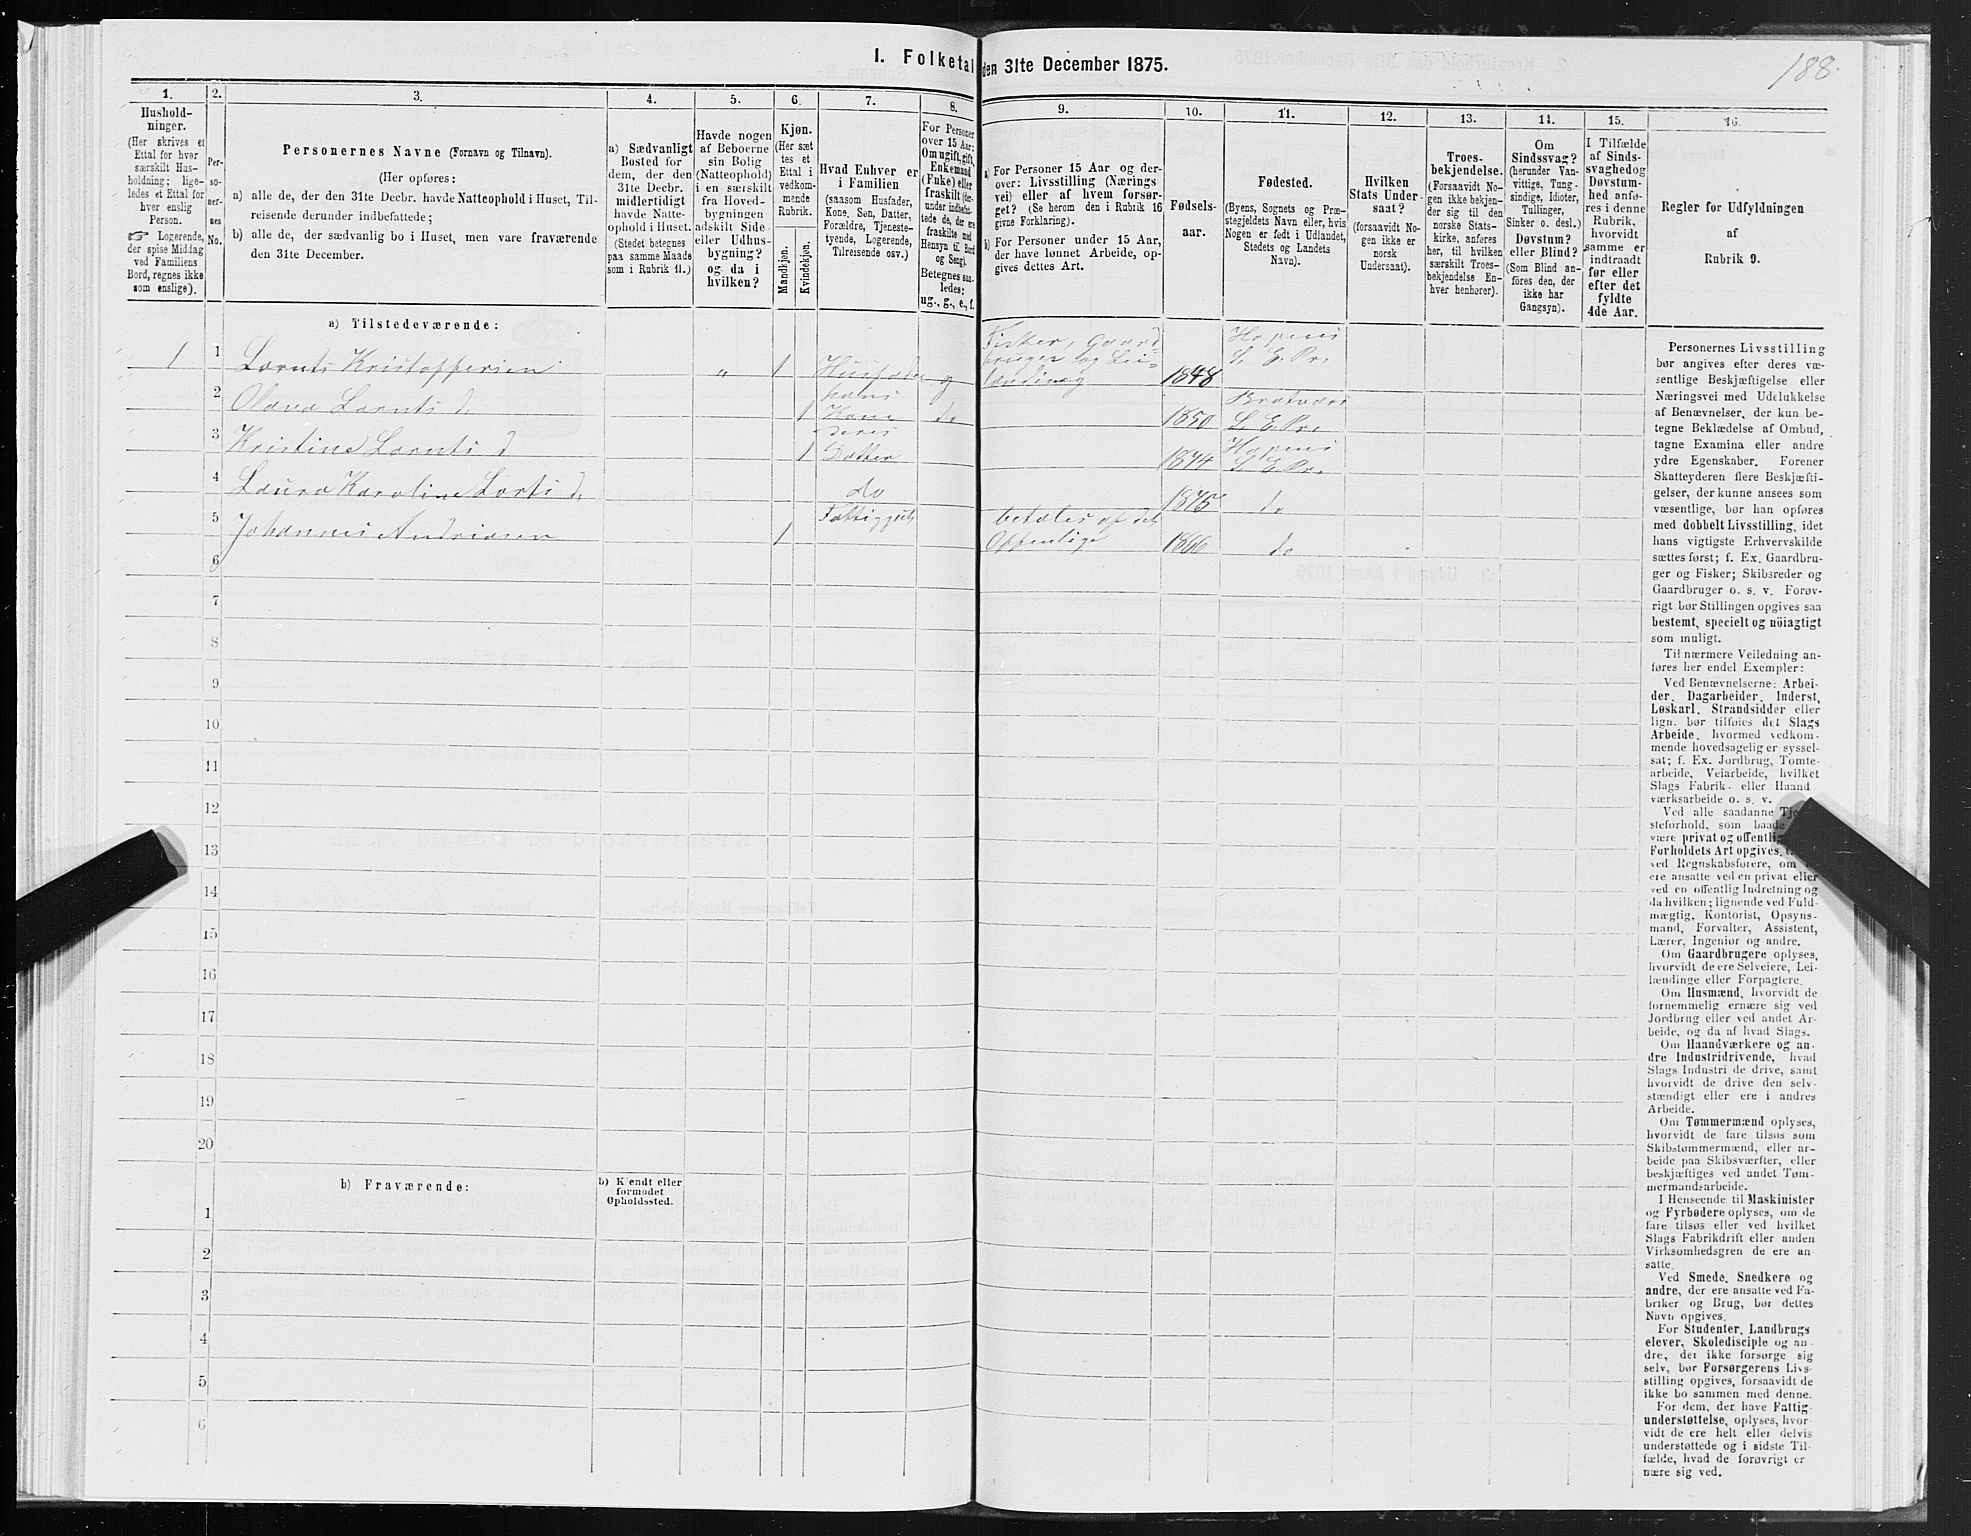 188.
I. Folketal den 31te December 1875.
1. 2. 3. 4. 5. 6. 7. 8. 9. 10. 11. 12. 13. 14. 15. 16.
Hushold-
ninger.
(Her skrives et
Ettal for hver
særskilt Hus-
holdning; lige-
ledes et Ettal for
hver enslig
Person.
☞ Logerende,
der spise Middag
ved Familiens
Bord, regnes ikke
som enslige).
Per-
so-
ner-
nes
No.
Personernes Navne (Fornavn og Tilnavn).
(Her opføres:
a) alle de, der den 31te Decbr. havde Natteophold i Huset, Til-
reisende derunder indbefattede;
b) alle de, der sædvanlig bo i Huset, men vare fraværende
den 31te December.
a) Sædvanligt
Bosted for
dem, der den
31te Decbr.
midlertidigt
havde Natte-
ophold i Huset.
(Stedet betegnes
paa samme Maade
som i Rubrik 11.)
Havde nogen
af Beboerne
sin Bolig
(Natteophold)
i en særskilt
fra Hoved-
bygningen
adskilt Side-
eller Udhus-
bygning?
og da i
hvilken?
Kjøn.
(Her sæt-
tes et
Ettal i
vedkom-
mende
Rubrik.
Mandkjøn.
Kvindekjøn.
Hvad Enhver er
i Familien
(saasom Husfader,
Kone, Søn, Datter,
Forældre, Tjeneste-
tyende, Logerende,
Tilreisende osv.)
For Personer
over 15 Aar:
Om ugift, gift,
Enkemand
(Enke) eller
fraskilt (der-
under indbefat-
tede de, der ere
fraskilte med
Hensyn til Bord
og Seng).
Betegnes saa-
ledes:
ug., g., e., f.
a) For Personer 15 Aar og der-
over: Livsstilling (Nærings
vei) eller af hvem forsør-
get? (Se herom den i Rubrik 16
givne Forklaring).
b) For Personer under 15 Aar,
der have lønnet Arbeide, op-
gives dettes Art.
Fødsels-
aar.
Fødested.
(Byens, Sognets og Præ-
stegjeldets Navn eller, hvis
Nogen er født i Udlandet,
Stedets og Landets
Navn).
Hvilken
Stats Under-
saat?
(forsaavidt No-
gen ikke er
norsk
Undersaat).
Troes-
bekjendelse.
(Forsaavidt No-
gen ikke bekjen-
der sig til den
norske Stats-
kirke, anføres
her, til hvilken
særskilt Troes-
bekjendelse En-
hver henhører).
Om
Sindssvag?
(herunder Van-
vittige, Tung-
sindige, Idioter,
Tullinger,
Sinker o. desl.)
Døvstum?
eller Blind?
(Som Blind an-
føres den, der
ikke har
Gangsyn).
I Tilfælde
af Sinds-
svaghed og
Døvstum-
hed anfø-
res i denne
Rubrik.
hvorvidt
samme er
indtraadt
før eller
efter det
fyldte
4de Aar.
Regler for Udfyldningen
af
Rubrik 9.
a) Tilstedeværende:
1 1 Lornts Kristoffersen " 1 Husfader g Fisker, Gaard=
bruger og Lei=
lænding 1848 Hopens
S. E. Pr.
2 Olava Lornts d. 1 hans
Kone do 1850 Bratvær
S. E. Pr.
3 Kristine Lornts d 1 deres
Datter 1874 Hopens
S. E. Pr.
4 Laura Karoline Lorts d. do 1875 do
5 Johannes Andriasen 1 betales af det
Offenlige 1866 do
6
7
8
9
10
11
12
13
14
15
16
17
18
19
20
b) Fraværende:
b) Kjendt eller
formodet
Opholdssted.
1
2
3
4
5
6
Personernes Livsstilling
bør angives efter deres væ-
sentlige Beskjæftigelse eller
Næringsvei med Udelukkelse
af Benævnelser, der kun be-
tegne Beklædelse af Ombud,
tagne Examina eller andre
ydre Egenskaber. Forener
Skatteyderen flere Beskjæfti-
gelser, der kunne ansees som
væsentlige, bør han opføres
med dobbelt Livsstilling, idet
hans vigtigste Erhvervskilde
sættes først; f. Ex. Gaardbru-
ger og Fisker; Skibsreder og
Gaardbruger o. s. v. Forøv-
rigt bør Stillingen opgives saa
bestemt, specielt og nöiagtigt
som muligt.
Til nærmere Veiledning an-
føres her endel Exempler:
Ved Benævnelserne: Arbei-
der, Dagarbeider, Inderst,
Løskarl, Strandsidder eller
lign. bør tilføies det Slags
Arbeide, hvormed vedkom-
mende hovedsagelig er syssel-
sat; f. Ex. Jordbrug, Tomte-
arbeide, Veiarbeide, hvilket
Slags Fabrik- eller Haand
værksarbeide o. s. v.
Ved alle saadanne
steforhold, som baade
være privat og offentlig
Forholdets Art opgives,
ved Regnskabsførere, om
ere ansatte ved en privat eller
ved en offentlig Indretning og
da hvilken; lignende ved Fuld-
mægtig, Kontorist, Opsyns-
mand, Forvalter, Assistent,
Lærer, Ingeniør og andre.
Om Gaardbrugere oplyses,
hvorvidt de ere Selveiere, Lei-
lændinge eller Forpagtere.
Om Husmænd, hvorvidt de
fornemmelig ernære sig ved
Jordbrug eller ved andet Ar-
beide, og da af hvad Slags.
Om Haandværkere og an-
dre Industridrivende, hvad
Slags Industri de drive, samt
hvorvidt de drive den selv-
stændigt eller ere i andres
Arbeide.
Om Tømmermænd oplyses,
hvorvidt de fare tilsøs som
Skibstømmermænd, eller ar-
beide paa Skibsværfter, eller
beskjæftiges ved andet Tøm-
mermandsarbeide.
I Henseende til Maskinister
og Fyrbødere oplyses, om de
fare tilsøs eller ved hvilket
Slags Fabrikdrift eller anden
Virksomhedsgren de ere an-
satte.
Ved Smede, Snedkere og
andre, der ere ansatte ved Fa-
briker og Brug, bør dettes
Navn opgives.
For Studenter, Landbrugs
elever, Skoledisciple og an-
dre, der ikke forsørge sig
selv, bør Forsørgerens Livs-
stilling opgives, forsaavidt de
ikke bo sammen med denne.
For dem, der have Fattig-
understøttelse, oplyses, hvor-
vidt de ere helt eller delvis
understøttede og i sidste Til-
fælde, hvad de forøvrigt er
nære sig ved.